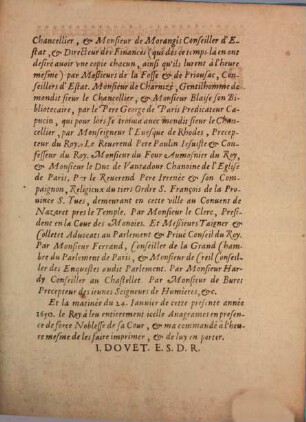 Chancellier, & Monsieur de Morangis Conseiller d'E-
stat, & Directeur des Finances (qui dés ce temps-là en ont
desiré avoir vne copie chacun, ainsi qu'ils lurent à l'heure
mesme) par Messieurs de la Fosse & de Priousac, Con-
seillers d'Estat. Monsieur de Charnizé, Gentilhomme de
mondit sieur le Chancellier, & Monsieur Blaise son Bi-
bliotecaire, par le Pere George de Paris Predicateur Ca-
pucin, qui pour lors se trouua auec mondit sieur le Chan-
cellier, par Monseigneur l'Euesque de Rhodes, Precep-
teur du Roy. Le Reuerend Pere Paulin Iesuiste & Con-
fesseur du Roy. Monsieur du Four Aumosnier du Roy,
& Monsieur le Duc de Vantadour Chanoine de l'Eglise
de Paris, Par le Reuerend Pere Irenée & son Com-
pagnon, Religieux du tiers Ordre S. François de la Pro-
uince S. Yues, demeurant en cette ville au Conuent de
Nazaret pres le Temple. Par Monsieur le Clerc, Presi-
dent en la Cour des Monoies. Et Messieurs Taigner &
Collette Aduocats au Parlement & Priué Conseil du Roy.
Par Monsieur Ferrand, Conseiller de la Grand Cham-
bre du Parlement de Paris, & Monsieur de Creil Conseil-
ler des Enquestes oudit Parlement. Par Monsieur Har-
dy Conseiller au Chastellet. Par Monsieur de Bures
Precepteur des ieunes Seigneurs de Humieres, &c.
Et la matinée du 24. Ianuier de cette presente année
1650. le Roy à leu entierement icelle Anagrames en presen-
ce de force Noblesse de sa Cour, & ma commandé à l'heu-
re mesme de les faire imprimer, & de luy en porter.
I. DOVET. E. S. D. R.